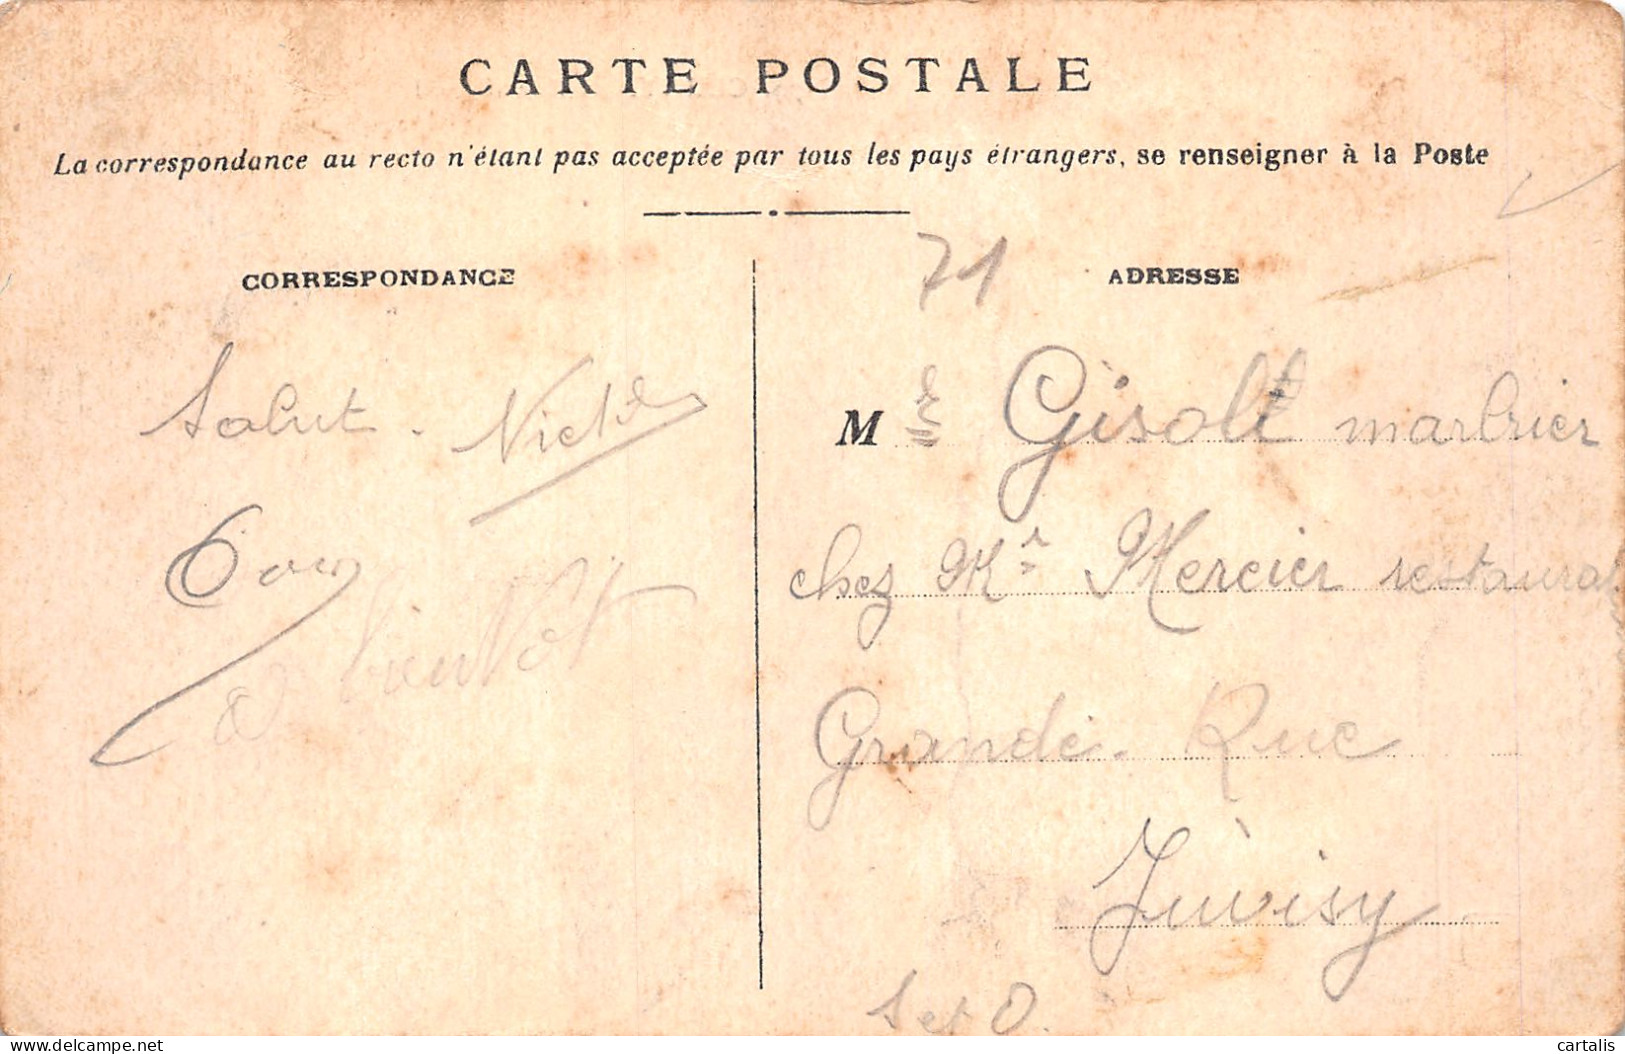 CARTE POSTALE
La correspondance au recto n'étant pas acceptée par tous les pays étrangers, se renseigner à la Poste
CORRESPONDANCE
Salut.
a bientot
71
ADRESSE
Mr Gisolt marbrier
chez Mr Mercier restaura
Grande. Rue
Juvisy
S et O.
delcampe.net
cartalis